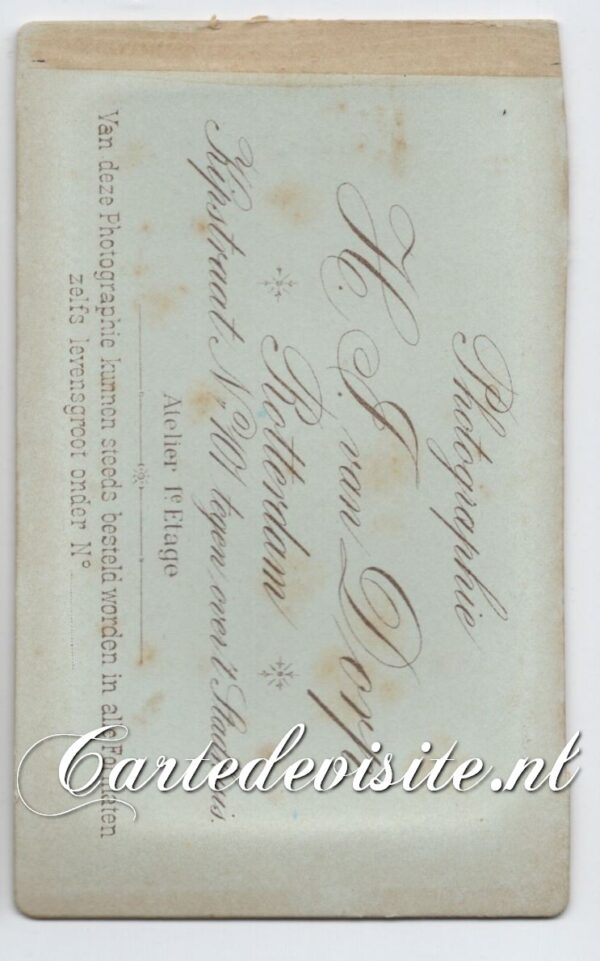 Photographie
H. J. van Dorp
Rotterdam
Kipstraat No 101 tegen over 't Stadhuis.
Atelier 1e Etage
Van deze Photographie kunnen steeds besteld worden in alle Formaten
zelfs levensgroot onder No
Cartedevisite.nl